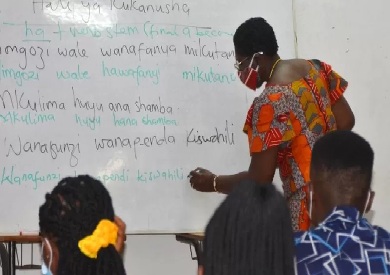 Hali ya kukanusha
ha + verb stem (final a becom
iongozi wale wanafanya mikutan
iongozi wale hawafanyi mikutan
Mkulima huyu ana shamba.
Mkulima huyu hana shamba
Wanafunzi wanapenda kiswahili
Wanafunzi pendi kiswahili